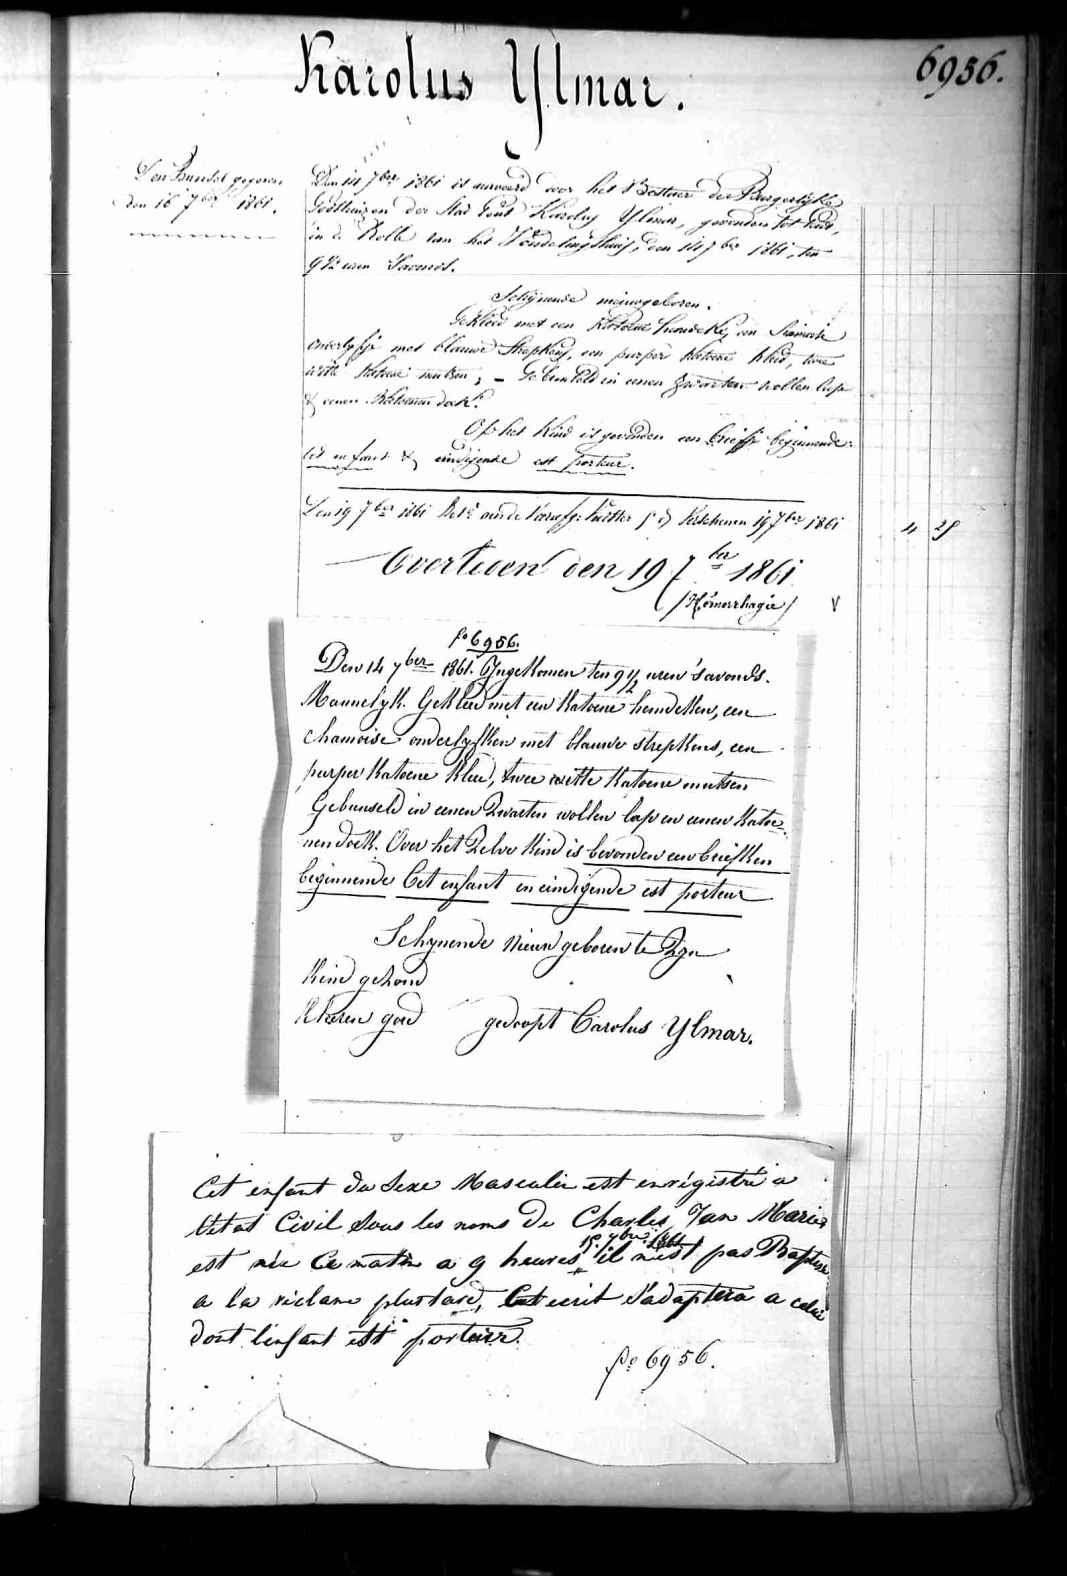 Karolus Ylmar.
6956.
Den Bundel gegeven
den 16 7ber 1861.
Den 14 7ber 1861 is aenveerd door het Bestuer der Burgerlyke
Godshuizen der Stad Gent Karolus Ylmar, gevonden tot Gent,
in de Rolle van het Vondelingshuis, den 14 7ber 1861, ten
9 1/2 uren Savonds.
Schynende nieuwgeboren.
Gekleed met een Katoene hemdeke, een Chamoise
onderlyfje met blauwe Strepkens, een purper Katoene Kleed, twee
witte Katoene mutsen; - Gebunseld in eenen zwarten wollen lap
& eenen Katoenen doek.
Op het Kind is gevonden een briefje beginnende:
Cet enfant & eindigende est porteur.
Den 19 7ber 1861 19 7ber 1861
4 25
Overleden den 19 7ber 1861
/Hémorrhagie/
V
fo 6956.
Den 14 7ber 1861. Ingekomen ten 9 1/2 uren 'savonds.
Mannelyk. Gekleed met een Katoene hemdeken, een
chamoise onderlyfken met blauwe strepkens, een
purper Katoene Kleed, twee witte Katoene mutsen
Gebunseld in eenen Zwarten wollen lap en eenen Katoe-
nen doek. Over het Zelve Kind is bevonden een briefken
beginnende Cet enfant en eindigende est porteur
Schynende nieuw geboren te Zyn
Kind gezond
Kleeren goed gedoopt Carolus Ylmar.
Cet enfant du Sexe Masculin est enrégistré a
l'état Civil Sous les noms de Charles Jan Marie
15. 7bre 1861
est née Ce matin a 9 heures il n'est pas Baptise
a la réclame plus tard, Cet ecrit S'adaptera a celui
dont l'enfant est porteur.
fo 6956.